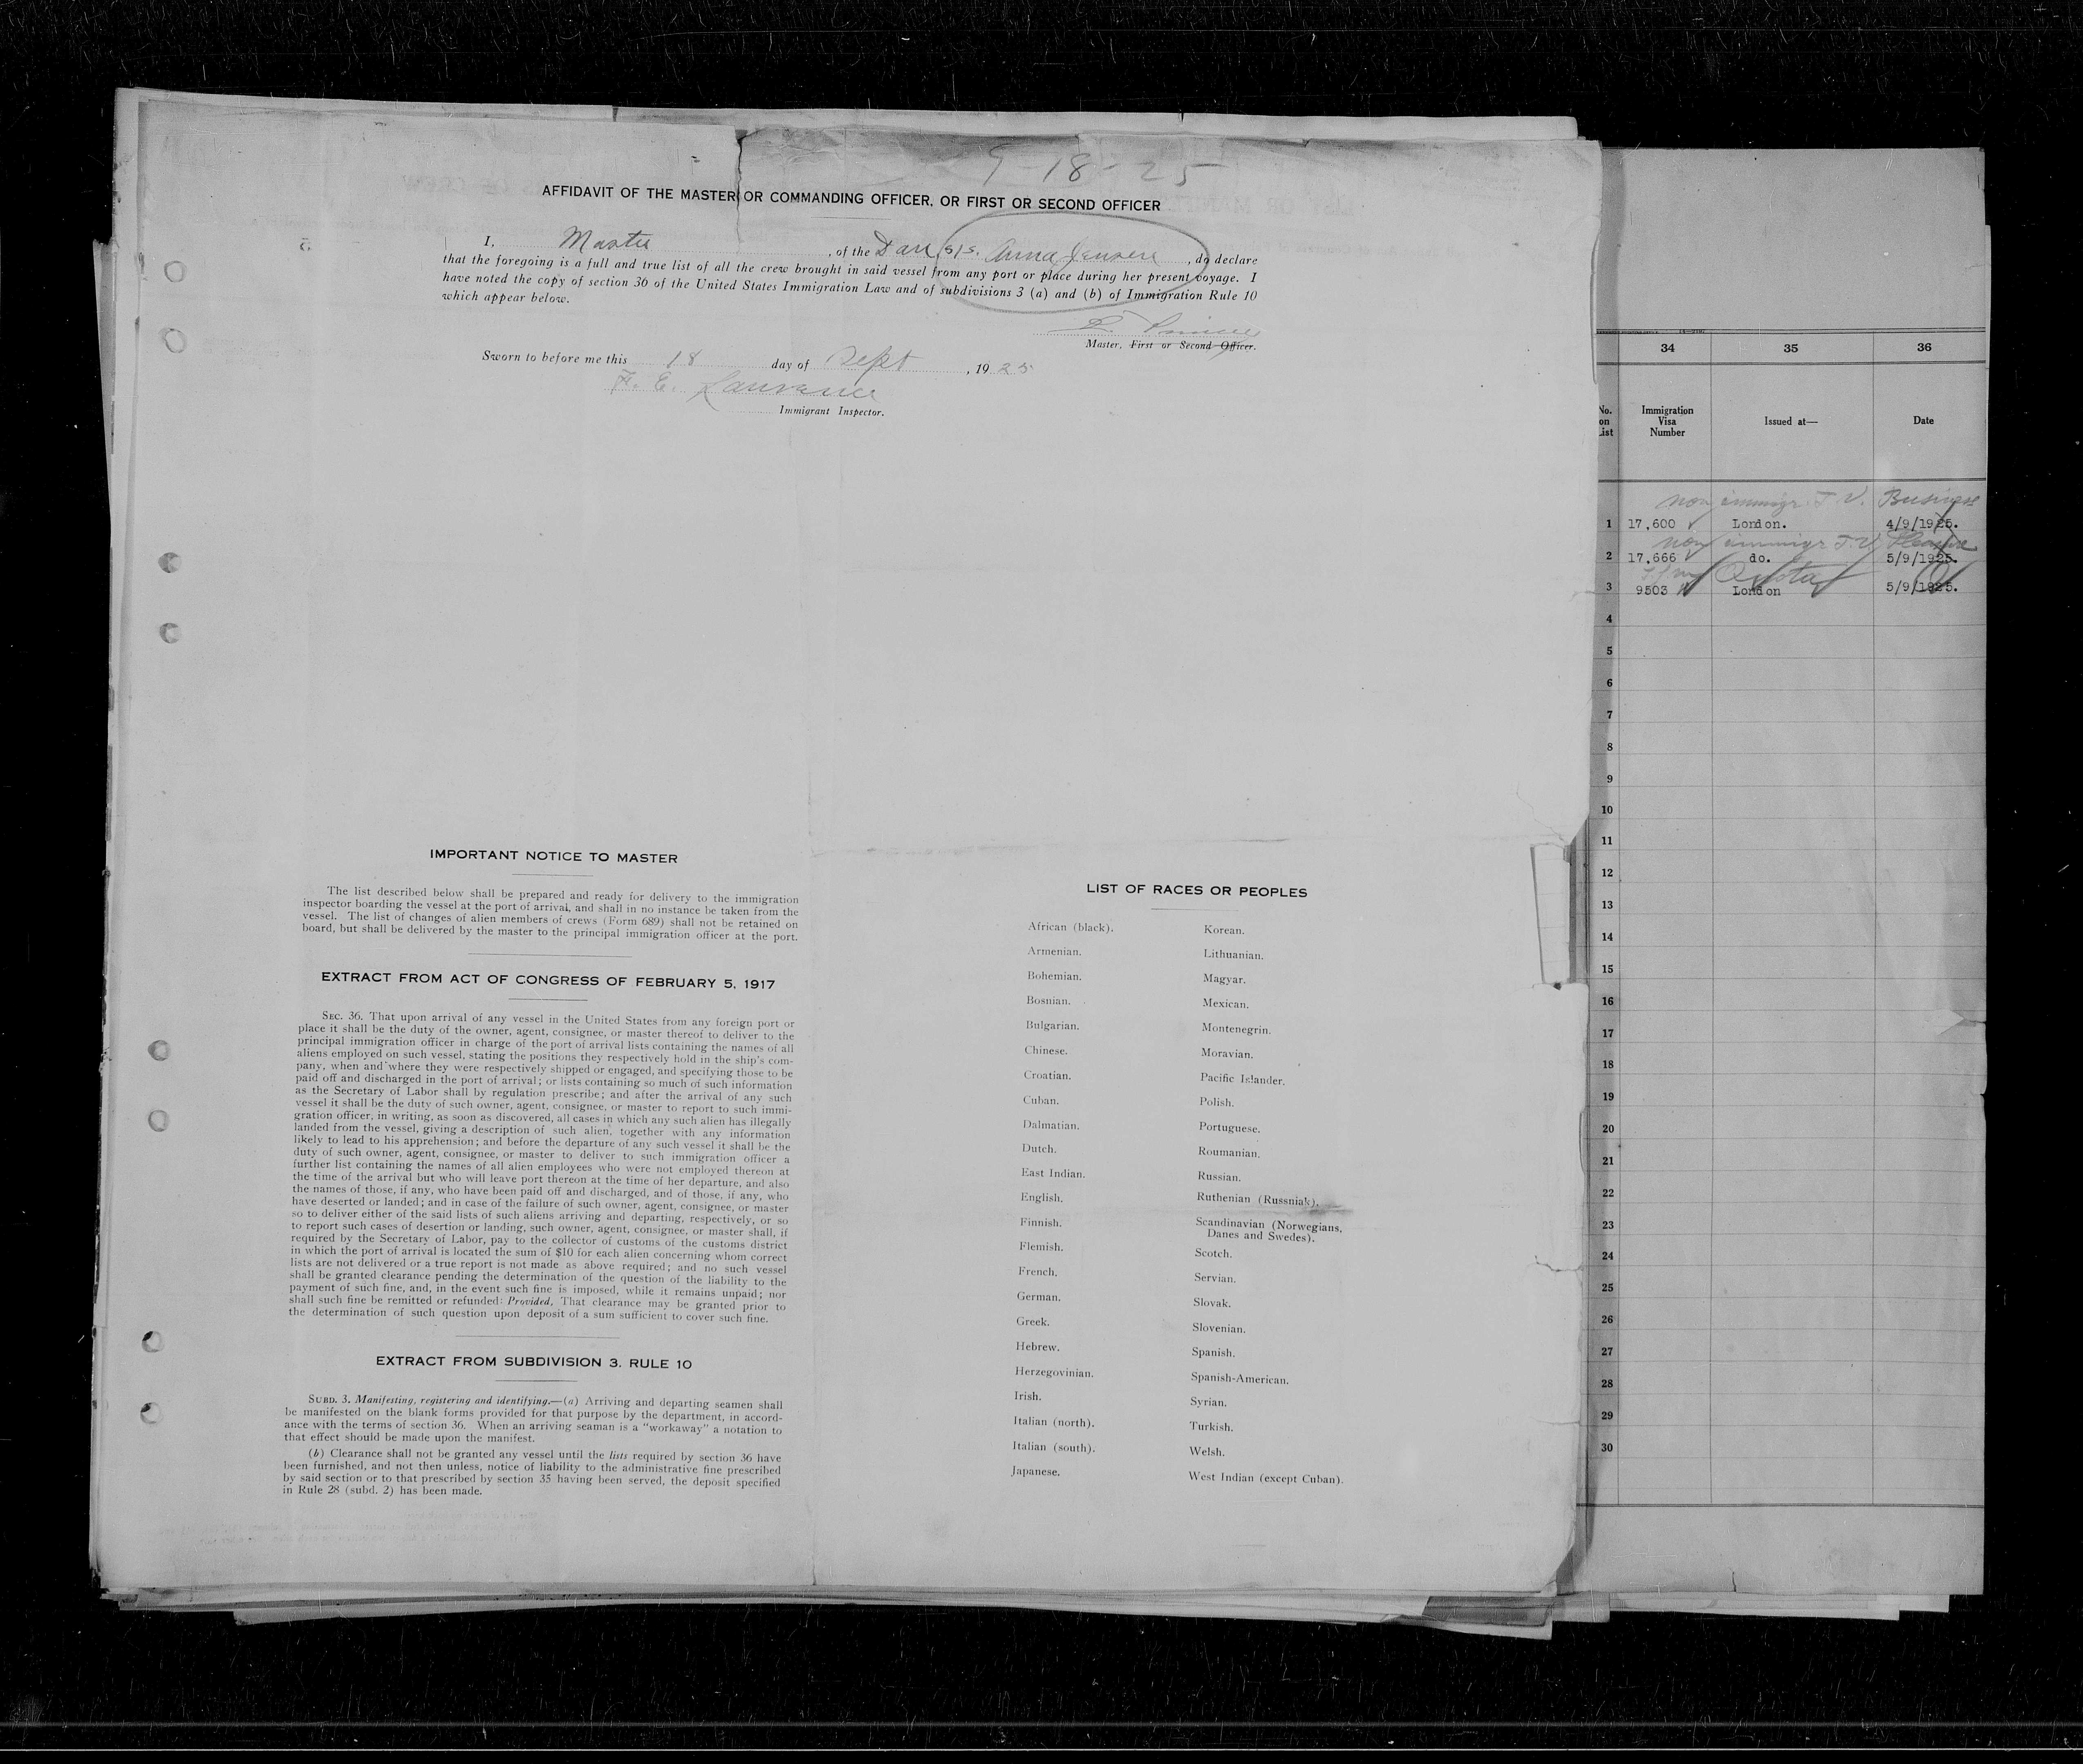 9-18-25
AFFIDAVIT OF THE MASTER OR COMMANDING OFFICER, OR FIRST OR SECOND OFFICER
I, Master, of the Dan S/S. Anna Jensen, do declare
that the foregoing is a full and true list of all the crew brought in said vessel from any port or place during her present voyage. I
have noted the copy of section 36 of the United States Immigration Law and of subdivisions 3 (a) and (b) of Immigration Rule 10
which appear below.
Master, First or Second Officer.
Sworn to before me this 18 day of Sept, 1925
F. E. Lawrence
Immigrant Inspector.
IMPORTANT NOTICE TO MASTER
The list described below shall be prepared and ready for delivery to the immigration
inspector boarding the vessel at the port of arrival, and shall in no instance be taken from the
vessel. The list of changes of alien members of crews (Form 689) shall not be retained on
board, but shall be delivered by the master to the principal immigration officer at the port.
EXTRACT FROM ACT OF CONGRESS OF FEBRUARY 5, 1917
SEC. 36. That upon arrival of any vessel in the United States from any foreign port or
place it shall be the duty of the owner, agent, consignee, or master thereof to deliver to the
principal immigration officer in charge of the port of arrival lists containing the names of all
aliens employed on such vessel, stating the positions they respectively hold in the ship's com-
pany, when and where they were respectively shipped or engaged, and specifying those to be
paid off and discharged in the port of arrival; or lists containing so much of such information
as the Secretary of Labor shall by regulation prescribe; and after the arrival of any such
vessel it shall be the duty of such owner, agent, consignee, or master to report to such immi-
gration officer, in writing, as soon as discovered, all cases in which any such alien has illegally
landed from the vessel, giving a description of such alien, together with any information
likely to lead to his apprehension; and before the departure of any such vessel it shall be the
duty of such owner, agent, consignee, or master to deliver to such immigration officer a
further list containing the names of all alien employees who were not employed thereon at
the time of the arrival but who will leave port thereon at the time of her departure, and also
the names of those, if any, who have been paid off and discharged, and of those, if any, who
have deserted or landed; and in case of the failure of such owner, agent, consignee, or master
so to deliver either of the said lists of such aliens arriving and departing, respectively, or so
to report such cases of desertion or landing, such owner, agent, consignee, or master shall, if
required by the Secretary of Labor, pay to the collector of customs of the customs district
in which the port of arrival is located the sum of $10 for each alien concerning whom correct
lists are not delivered or a true report is not made as above required; and no such vessel
shall be granted clearance pending the determination of the question of the liability to the
payment of such fine, and, in the event such fine is imposed, while it remains unpaid; nor
shall such fine be remitted or refunded: Provided, That clearance may be granted prior to
the determination of such question upon deposit of a sum sufficient to cover such fine.
EXTRACT FROM SUBDIVISION 3, RULE 10
SUBD. 3. Manifesting, registering and identifying.—(a) Arriving and departing seamen shall
be manifested on the blank forms provided for that purpose by the department, in accord-
ance with the terms of section 36. When an arriving seaman is a "workaway" a notation to
that effect should be made upon the manifest.
(b) Clearance shall not be granted any vessel until the lists required by section 36 have
been furnished, and not then unless, notice of liability to the administrative fine prescribed
by said section or to that prescribed by section 35 having been served, the deposit specified
in Rule 28 (subd. 2) has been made.
LIST OF RACES OR PEOPLES
African (black).
Armenian.
Bohemian.
Bosnian.
Bulgarian.
Chinese.
Croatian.
Cuban.
Dalmatian.
Dutch.
East Indian.
English.
Finnish.
Flemish.
French.
German.
Greek.
Hebrew.
Herzegovinian.
Irish.
Italian (north).
Italian (south).
Japanese.
Korean.
Lithuanian.
Magyar.
Mexican.
Montenegrin.
Moravian.
Pacific Islander.
Polish.
Portuguese.
Roumanian.
Russian.
Ruthenian (Russniak).
Scandinavian (Norwegians,
Danes and Swedes).
Scotch.
Servian.
Slovak.
Slovenian.
Spanish.
Spanish-American.
Syrian.
Turkish.
Welsh.
West Indian (except Cuban).
34 35 36
No.
on
List
Immigration
Visa
Number
Issued at—
Date
non immigr T.V. Business
1 17,600 London. 4/9/1925.
non immigr T.V. Pleasure
2 17,666 do. 5/9/1925.
Quota
3 9503 London 5/9/1925.
4
5
6
7
8
9
10
11
12
13
14
15
16
17
18
19
20
21
22
23
24
25
26
27
28
29
30